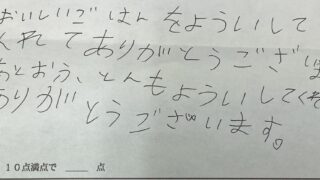 おいしいごはんをよういして
くれてありがとうござい
おとおふ、とんもよういしてくれ
ありがとうございます。
10点満点で ___ 点